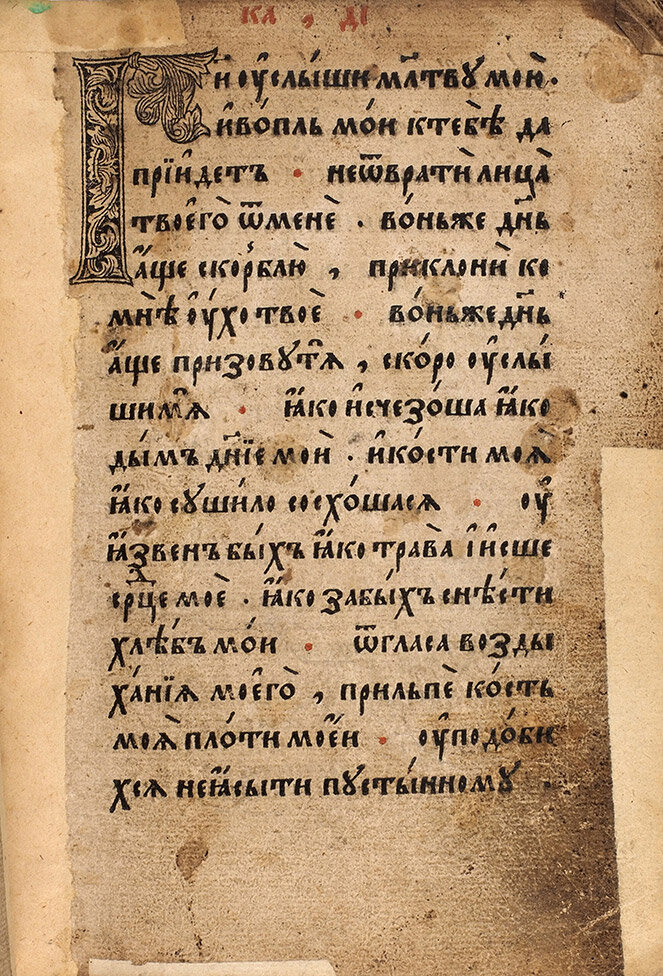 ка , ді
Ги оу҆слы́ши мл҃тву мою̀.
и҆во́пль мо́и ктебѣ̀ да
прїи́детъ • неѿвратѝ лица̀
твоегѡ̀ ѿменѐ . во́ньже дн҃ь
а҆́ще скорблю̀ , приклонѝ ко
мнѣ̀ оу҆́хо твоѐ • во́ньже дн҃ь
а҆́ще призову́ тѧ , ско́ро оу҆слы́
ши мѧ • ꙗ҆́ко и҆счезо́ша ꙗ҆́ко
ды́мъ дн҃їе моѝ . и҆ко́сти моѧ̀
ꙗ҆́ко сꙋши́ло сосхо́шасѧ • оу҆
ꙗ҆́звенъ бы́хъ ꙗ҆́ко трава̀ і҆и҆́сше
срⷣце моѐ . ꙗ҆́ко забы́хъ снѣ́сти
хлѣ́бъ мо́и • ѿгласа возды
ха́нїѧ моегѡ̀ , прильпѐ ко́сть
моѧ̀ пло́ти мое́и • оу҆подо́би
хсѧ неꙗ҆́сыти пꙋсты́нномꙋ .